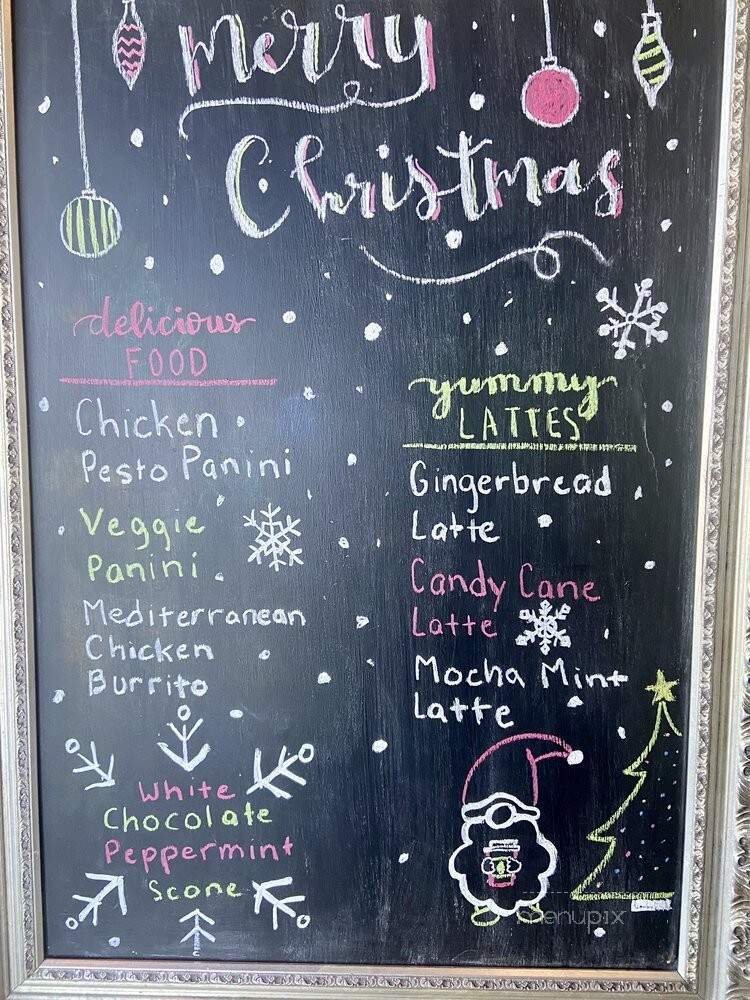 Merry
Christmas
delicious
FOOD
Chicken
Pesto Panini
Veggie
Panini
Mediterranean
Chicken
Burrito
White
Chocolate
Peppermint
Scone
yummy
LATTES
Gingerbread
Latte
Candy Cane
Latte
Mocha Mint
Latte
menupix